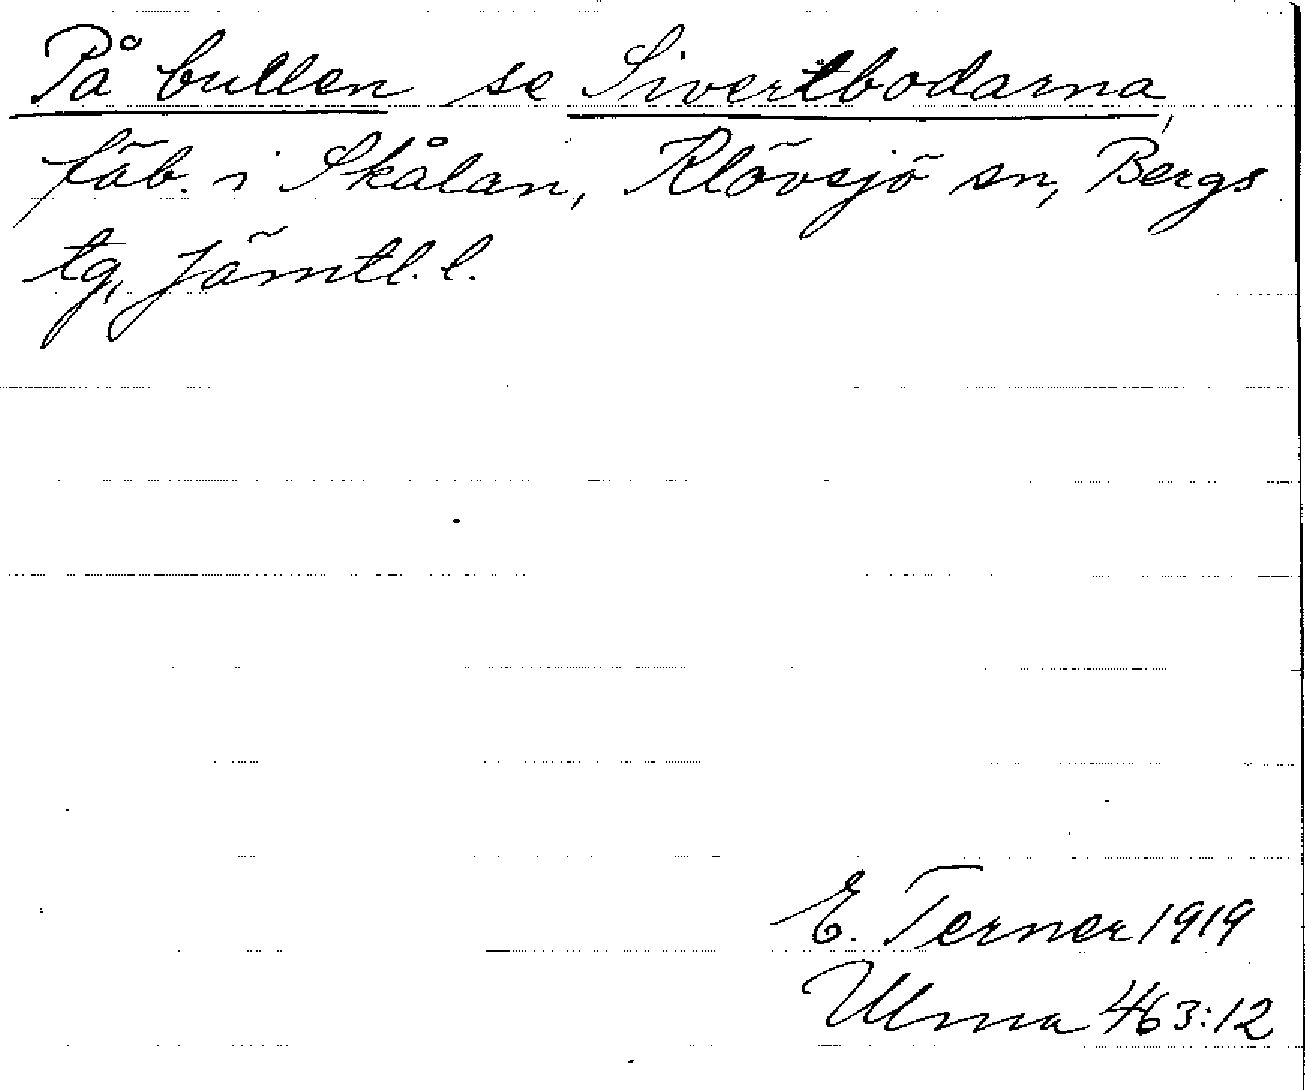 På bullen se Sivertbodarna,
fäb. i Skålan, Klövsjö sn, Bergs
tg, Jämtl. l.
E. Terner 1919
Ulma 463:12